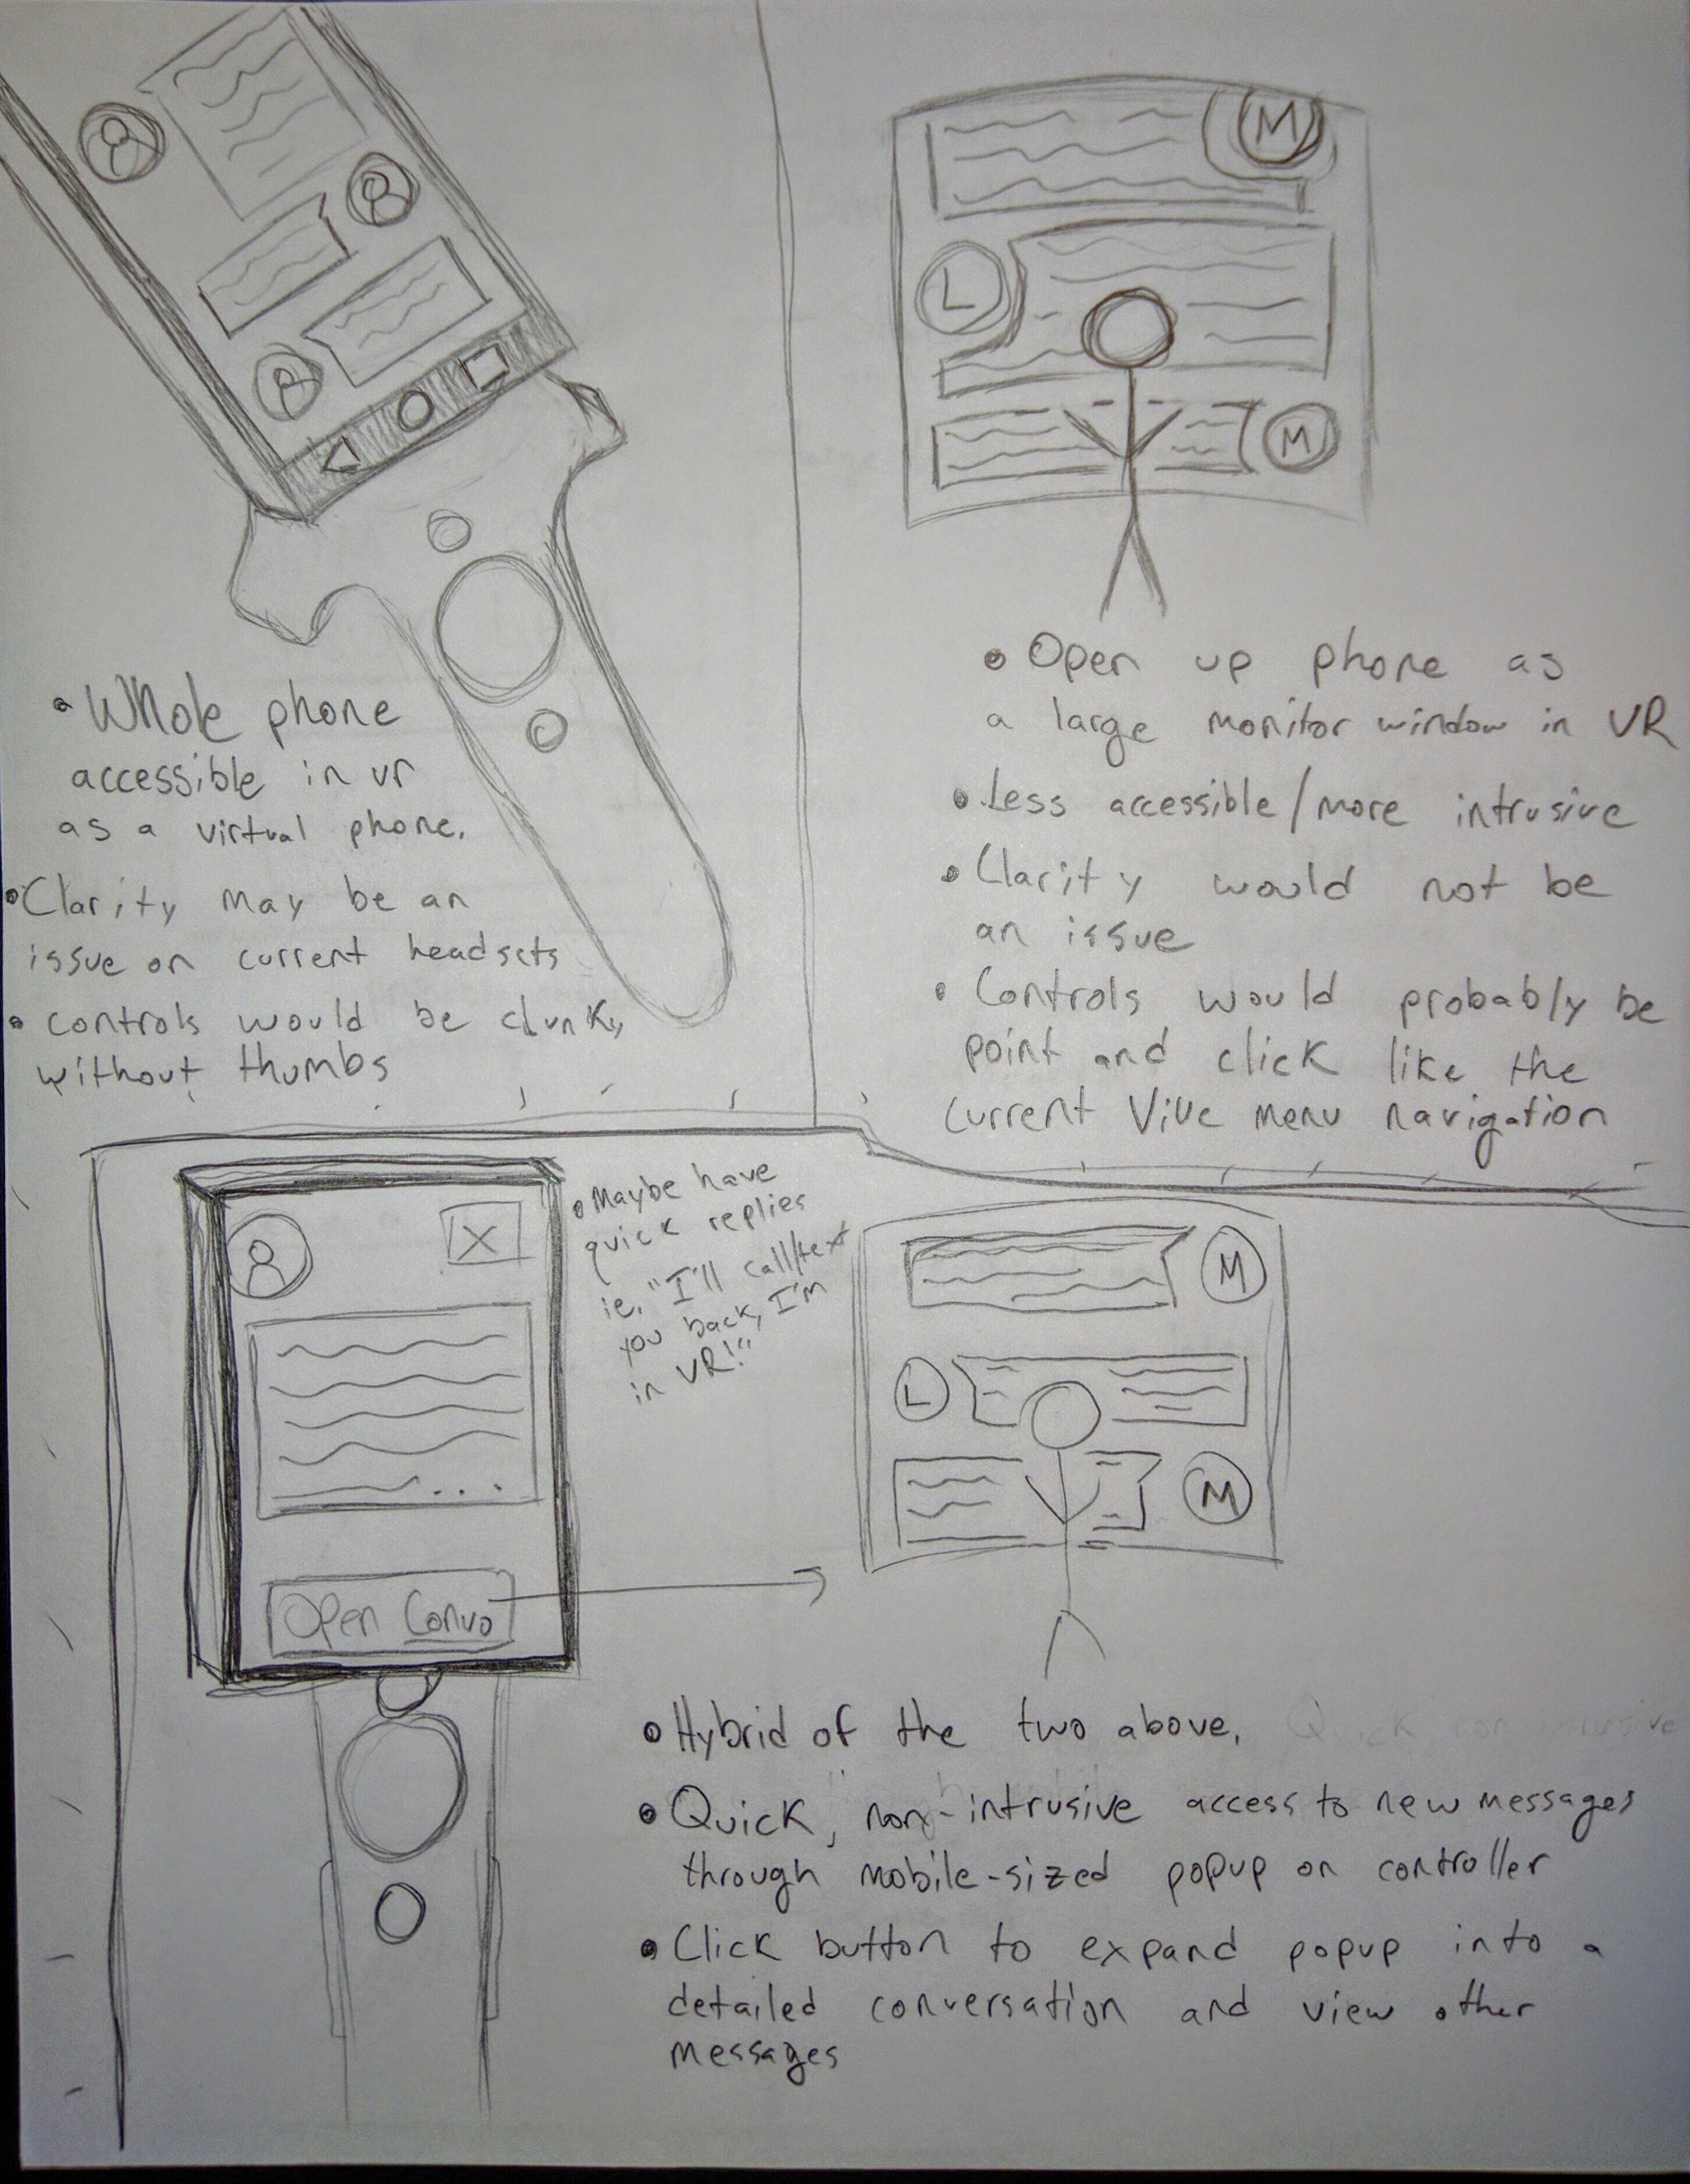 • Whole phone
accessible in vr
as a virtual phone.
• Clarity may be an
issue on current headsets
• controls would be clunky
without thumbs
M
L
M
• Open up phone as
a large monitor window in VR
• Less accessible/more intrusive
• Clarity would not be
an issue
• Controls would probably be
point and click like the
current Vive menu navigation
X
...
Open Convo
• Maybe have
quick replies
ie. "I'll call/text
you back, I'm
in VR!"
M
L
M
• Hybrid of the two above.
• Quick, non-intrusive access to new messages
through mobile-sized popup on controller
• Click button to expand popup into a
detailed conversation and view other
messages